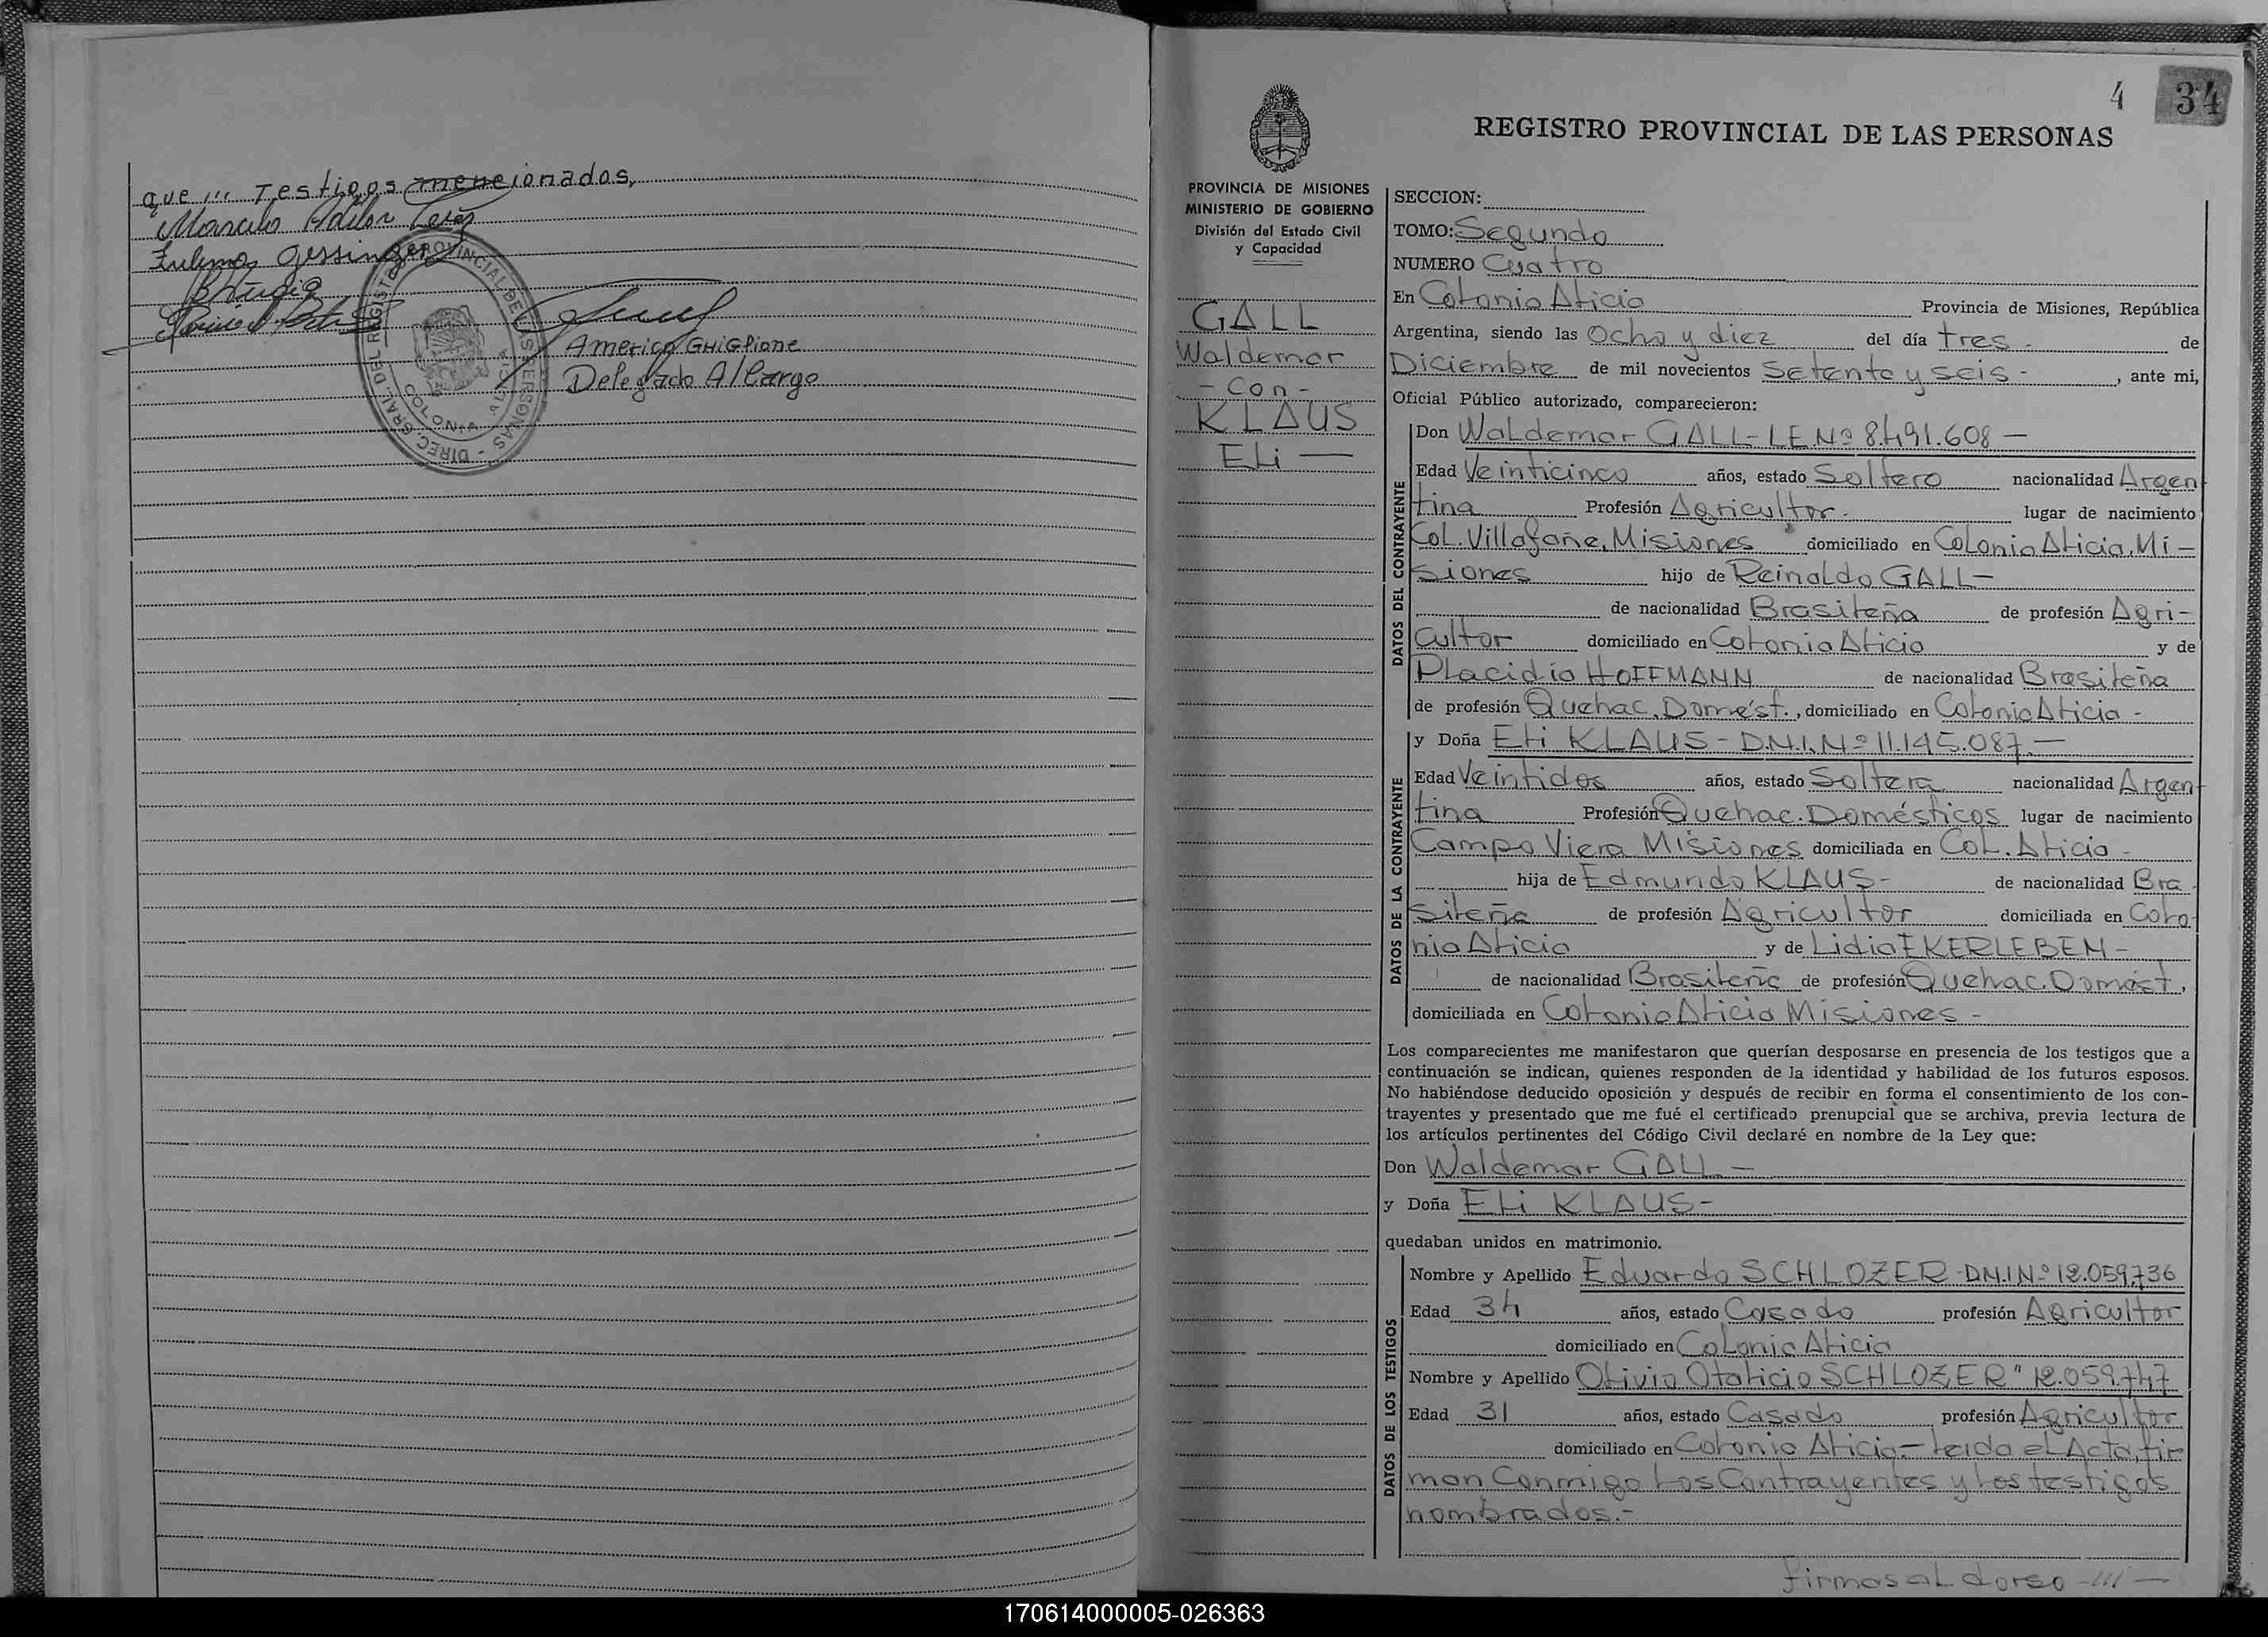 que ,,, Testigos mencionados,
Marcelo
Zulema Gessinger
Americo GHiGlione
Delegado A/Cargo
DIREC. GRAL. DEL REGISTRO PROVINCIAL DE LAS PERSONAS
COLONIA ALICIA
4 34
REGISTRO PROVINCIAL DE LAS PERSONAS
PROVINCIA DE MISIONES
MINISTERIO DE GOBIERNO
División del Estado Civil
y Capacidad
GALL
Waldemar
- Con -
KLAUS
Eli —
SECCION:
TOMO: Segundo
NUMERO Cuatro
En Colonia Alicia Provincia de Misiones, República
Argentina, siendo las Ocho y diez del día tres - de
Diciembre de mil novecientos Setenta y seis - , ante mi,
Oficial Público autorizado, comparecieron:
DATOS DEL CONTRAYENTE
Don Waldemar GALL - LE Nº 8.491.608 —
Edad Veinticinco años, estado Soltero nacionalidad Argen
tina Profesión Agricultor - lugar de nacimiento
Col. Villafañe, Misiones domiciliado en Colonia Alicia, Mi -
siones hijo de Reinaldo GALL -
de nacionalidad Brasileña de profesión Agri -
cultor domiciliado en Colonia Alicia y de
Placidia HOFFMANN de nacionalidad Brasileña
de profesión Quehac. Domést. , domiciliado en Colonia Alicia -
DATOS DE LA CONTRAYENTE
y Doña Eli KLAUS - D.N.I. Nº 11.145.087. —
Edad Veintidos años, estado Soltera nacionalidad Argen
tina Profesión Quehac. Domésticos lugar de nacimiento
Campo Viera Misiones domiciliada en Col. Alicia -
hija de Edmundo KLAUS - de nacionalidad Bra
sileña de profesión Agricultor domiciliada en Colo
nia Alicia y de Lidia EKERLEBEN -
de nacionalidad Brasileña de profesión Quehac. Domést,
domiciliada en Colonia Alicia Misiones -
Los comparecientes me manifestaron que querían desposarse en presencia de los testigos que a
continuación se indican, quienes responden de la identidad y habilidad de los futuros esposos.
No habiéndose deducido oposición y después de recibir en forma el consentimiento de los con-
trayentes y presentado que me fué el certificado prenupcial que se archiva, previa lectura de
los artículos pertinentes del Código Civil declaré en nombre de la Ley que:
Don Waldemar GALL —
y Doña Eli KLAUS -
quedaban unidos en matrimonio.
DATOS DE LOS TESTIGOS
Nombre y Apellido Eduardo SCHLOZER - D.N.I Nº 12.059.736
Edad 34 años, estado Casado profesión Agricultor
domiciliado en Colonia Alicia
Nombre y Apellido Olivio Otalicio SCHLOZER " 12.059.747
Edad 31 años, estado Casado profesión Agricultor
domiciliado en Colonia Alicia - leida el Acta, fir
man Conmigo los Contrayentes y los testigos
nombrados. -
firmas al dorso -///-
170614000005-026363